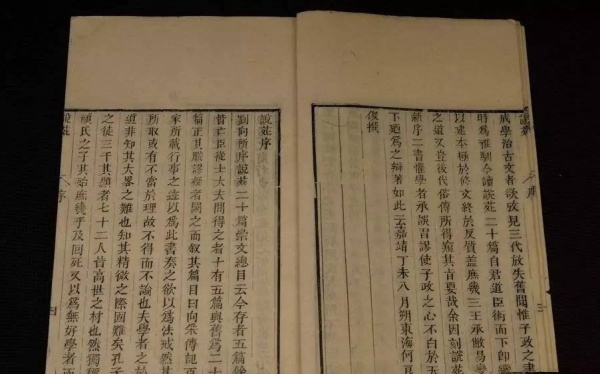 說苑 序
咸學治古文者欲攷見三代放失舊聞惟子政之書
時爲雅馴今讀說苑二十篇自君道臣術而下即繼
以建本極於修文終於反質蓋庶幾三王承敝易變
之道又豈後代俗儒所得窺其旨要哉余因刻說苑
新序二書懼學者承誤習謬使子政之心不白於天
下廼爲之辯著如此云嘉靖丁未八月朔東海何良
俊撰
說苑序
劉向所序說苑二十篇崇文總目云今存者五篇餘
皆亡臣從士大夫間得之者十有五篇與舊爲二十
篇正其脫謬疑者闕之而叙其篇目曰向采傳記百
家所載行事之迹以爲此書奏之欲以爲法戒然其
所取或有不當於理故不得而不論也夫學者之於
道非知其大畧之難也知其精微之際固難矣孔子
之徒三千其顯者七十二人皆高世之材也然獨稱
顏氏之子其殆庶幾乎及回死又以爲無好學者而
說苑 序